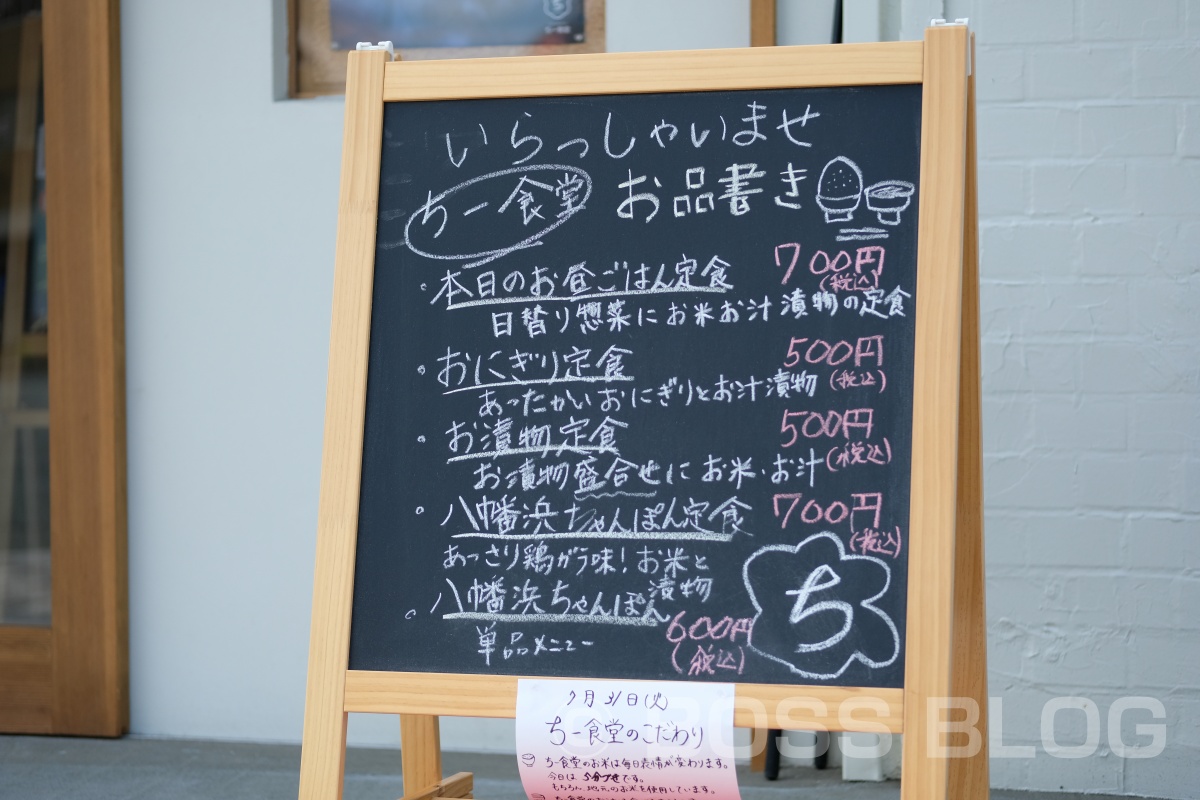 いらっしゃいませ
ちー食堂 お品書き
・本日のお昼ごはん定食 700円
(税込)
日替り惣菜にお米お汁漬物の定食
・おにぎり定食 500円
(税込)
あったかいおにぎりとお汁漬物
・お漬物定食 500円
(税込)
お漬物盛合せにお米・お汁
・八幡浜ちゃんぽん定食 700円
(税込)
あっさり鶏がら味!お米と
漬物
・八幡浜ちゃんぽん 600円
(税込)
単品メニュー
ち
7月31日(火)
ちー食堂のこだわり
ちー食堂のお米は毎日表情が変わります。
今日は、5分づきです。
もちろん、地元のお米を使用しています。
BOSS BLOG